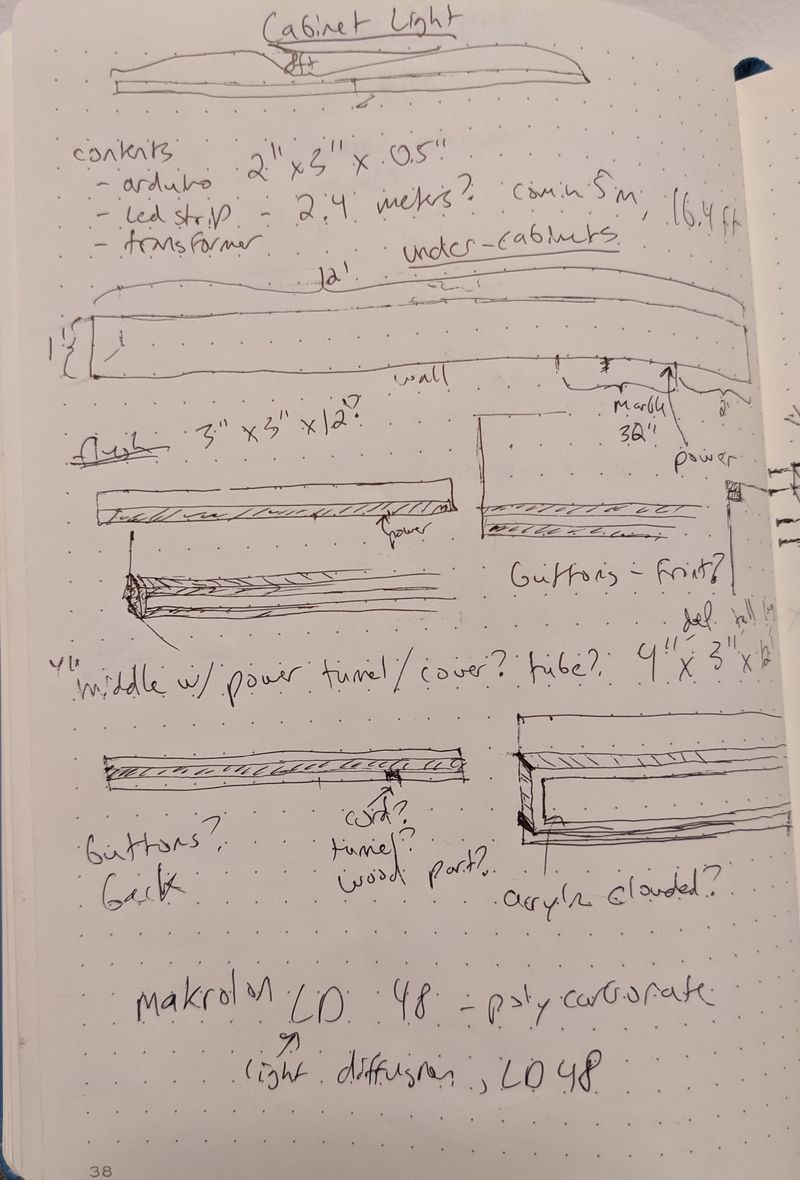 Cabinet Light
8ft
contents
- arduino 2" x 3" x 0.5"
- led strip - 2.4 meters? comin 5m, 16.4 ft
- transformer
under-cabinets
12'
1'
wall
2'
32"
power
flush 3" x 3" x 12'?
power
buttons - front?
middle w/ power tunnel/cover? tube? 4" x 3" x 12'
cord?
tunnel?
wood part?
buttons?
back
acrylic clouded?
Makrolon LD 48 - polycarbonate
light diffusion, LD48
38